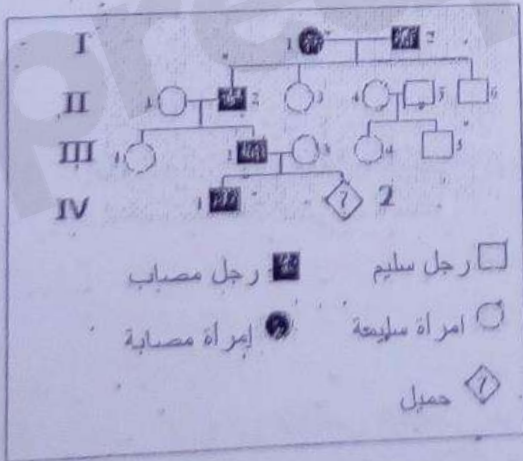 I 1 2
II 1 2 3 4 5 6
III 1 2 3 4 5
IV 1 ? 2
رجل سليم رجل مصاب
امرأة سليمة إمرأة مصابة
? حميل